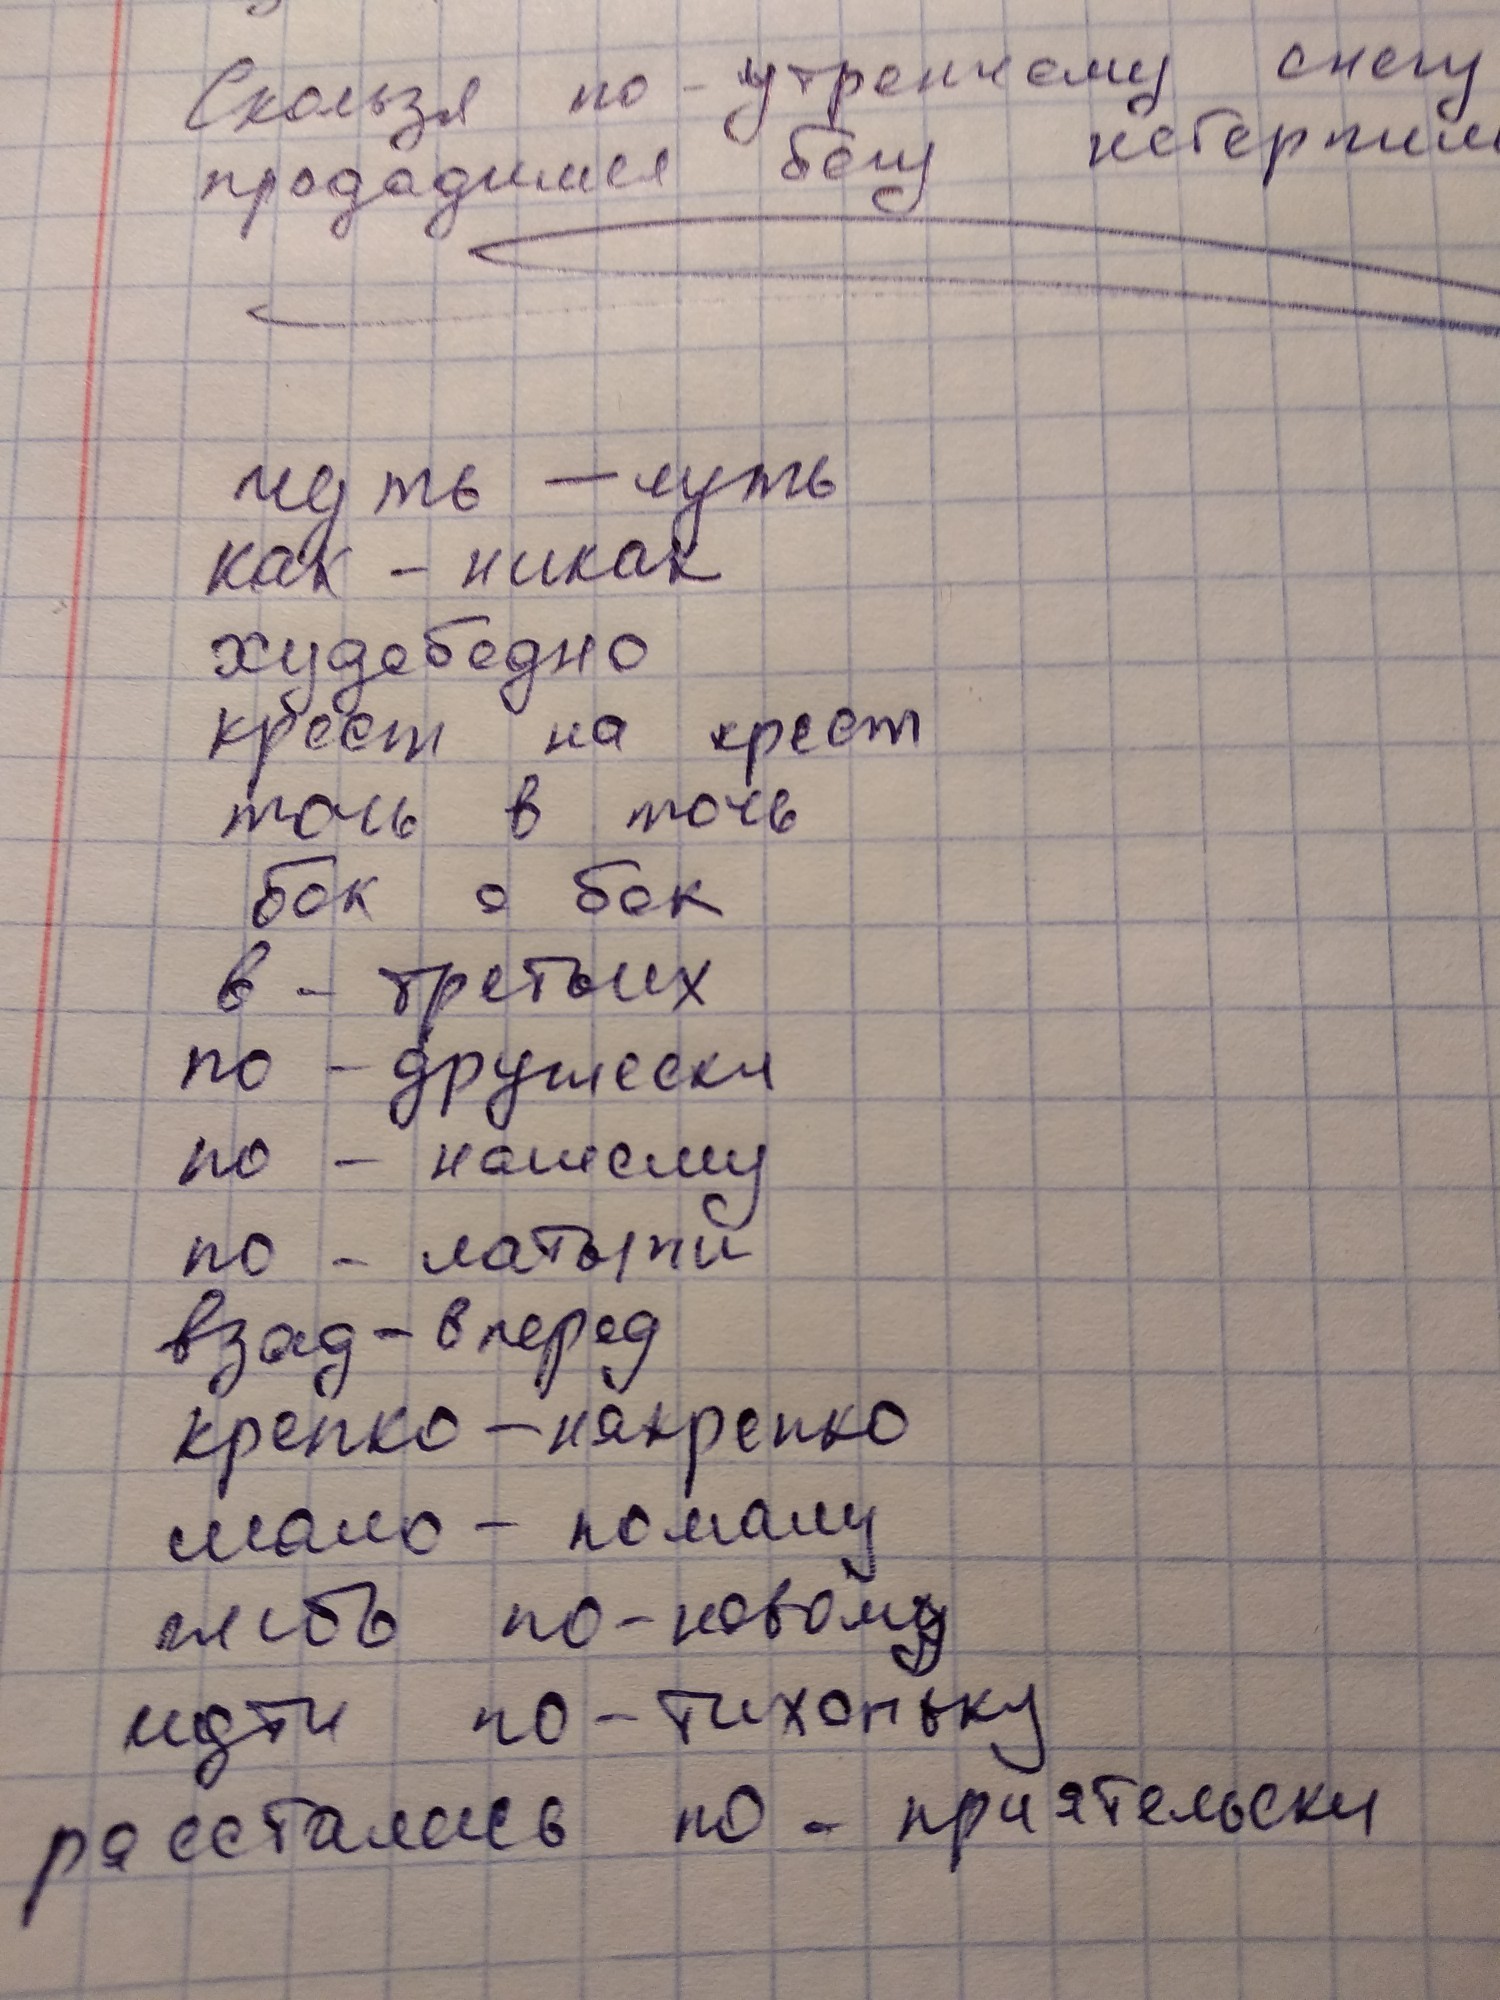 Скользя по-утреннему снегу
продадимся бегу нетерпим
чуть — чуть
как - никак
худобедно
крест на крест
точь в точь
бок о бок
в - третьих
по - дружески
по - нашему
по - латыни
взад - вперед
крепко - накрепко
мало - помалу
жить по-новому
идти по-тихоньку
расстались по - приятельски